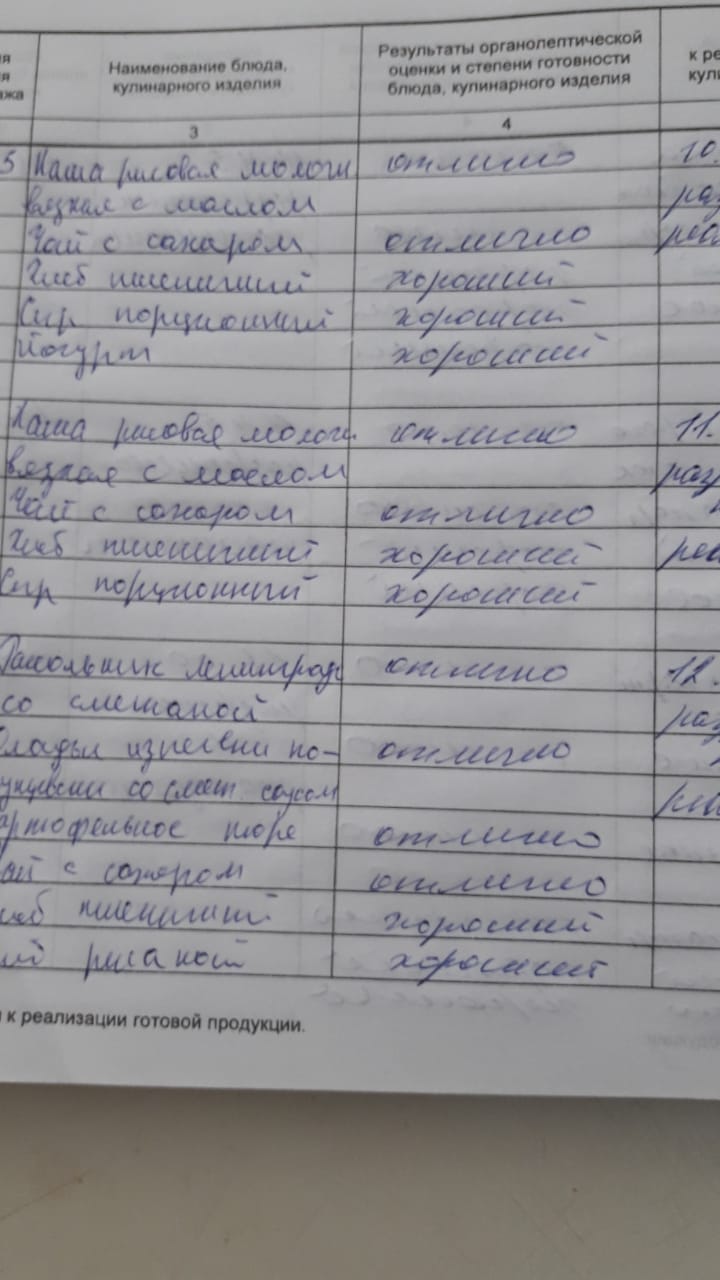 Наименование блюда, Результаты органолептической к ре
кулинарного изделия оценки и степени готовности кули
ажа блюда, кулинарного изделия
3 4
5 Каша рисовая молочн отлично 10.
вязкая с маслом раз
Чай с сахаром отлично реа
Хлеб пшеничный хороший
Сыр порционный хороший
Йогурт хороший
Каша рисовая молочн. отлично 11.
вязкая с маслом раз
Чай с сахаром отлично
Хлеб пшеничный хороший реа
Сыр порционный хороший
Рассольник ленинград отлично 12.
со сметаной раз
Оладьи из печени по- отлично
кунцевски со смет. соусом реа
артофельное пюре отлично
ай с сахаром отлично
леб пшеничный хороший
ржаной хороший
к реализации готовой продукции.